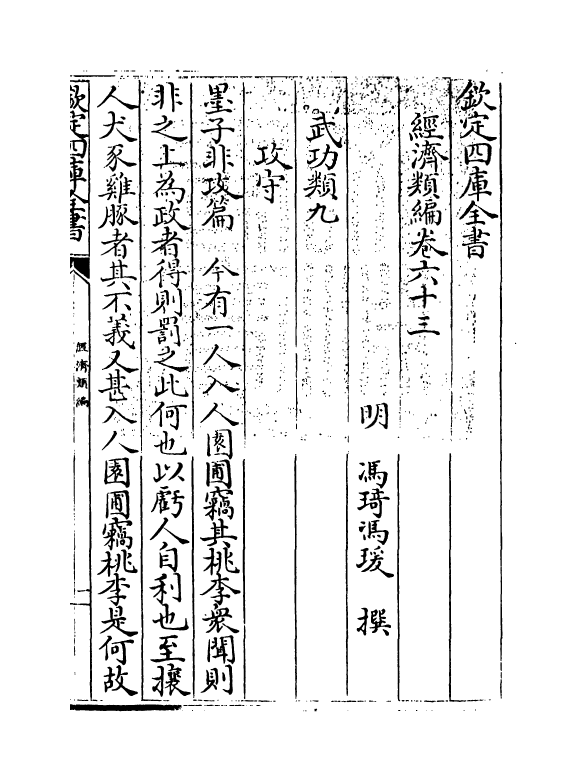 欽定四庫全書
經濟類編卷六十三
明 馮琦馮瑗 撰
武功類九
攻守
墨子非攻篇 今有一人入人園圃竊其桃李衆聞則
非之上為政者得則罰之此何也以虧人自利也至攘
人犬豕雞豚者其不義又甚入人園圃竊桃李是何故
欽定四庫全書
經濟類編
一